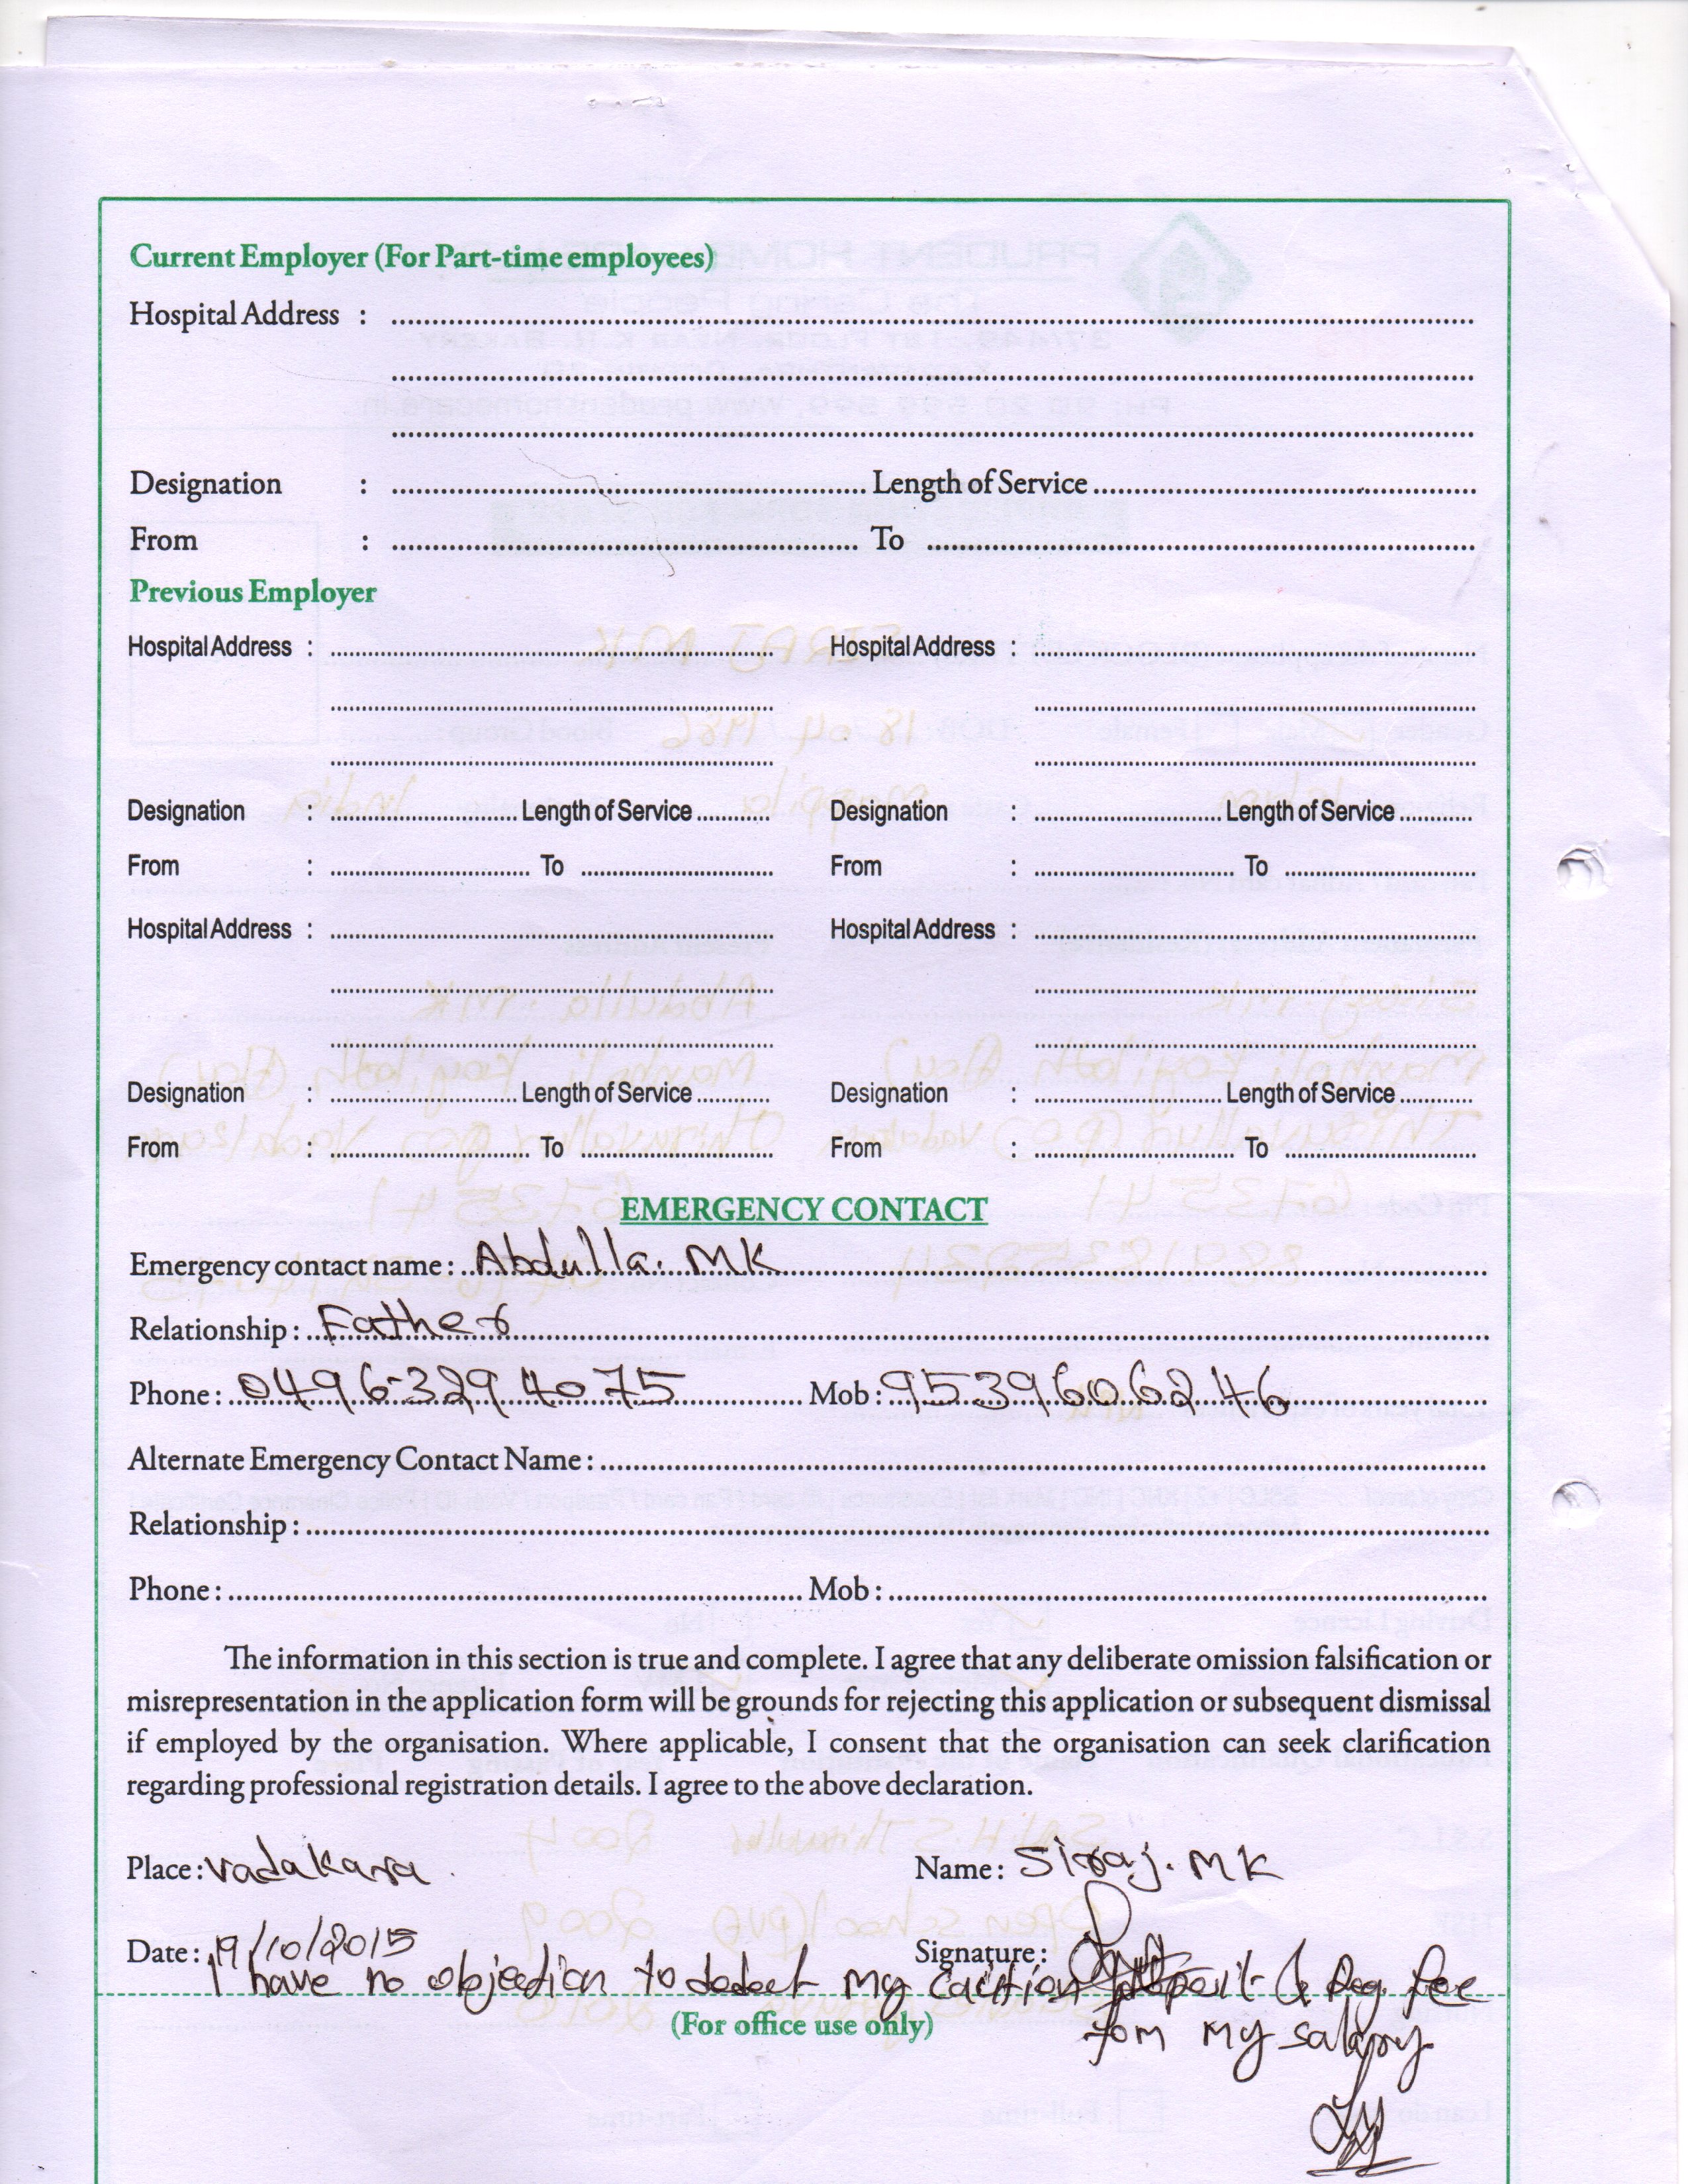 Current Employer (For Part-time employees)
Hospital Address :
Designation : Length of Service
From : To
Previous Employer
Hospital Address : Hospital Address :
Designation : Length of Service Designation : Length of Service
From : To From : To
Hospital Address : Hospital Address :
Designation : Length of Service Designation : Length of Service
From : To From : To
EMERGENCY CONTACT
Emergency contact name : Abdulla. MK
Relationship : Father
Phone : 0496-3294075 Mob : 9539606246
Alternate Emergency Contact Name :
Relationship :
Phone : Mob :
The information in this section is true and complete. I agree that any deliberate omission falsification or
misrepresentation in the application form will be grounds for rejecting this application or subsequent dismissal
if employed by the organisation. Where applicable, I consent that the organisation can seek clarification
regarding professional registration details. I agree to the above declaration.
Place : Vadakara Name : Siraj. MK
Date : 19/10/2015 Signature :
I have no objection to dedect my caution & Reg fee
(For office use only)
fom my salary